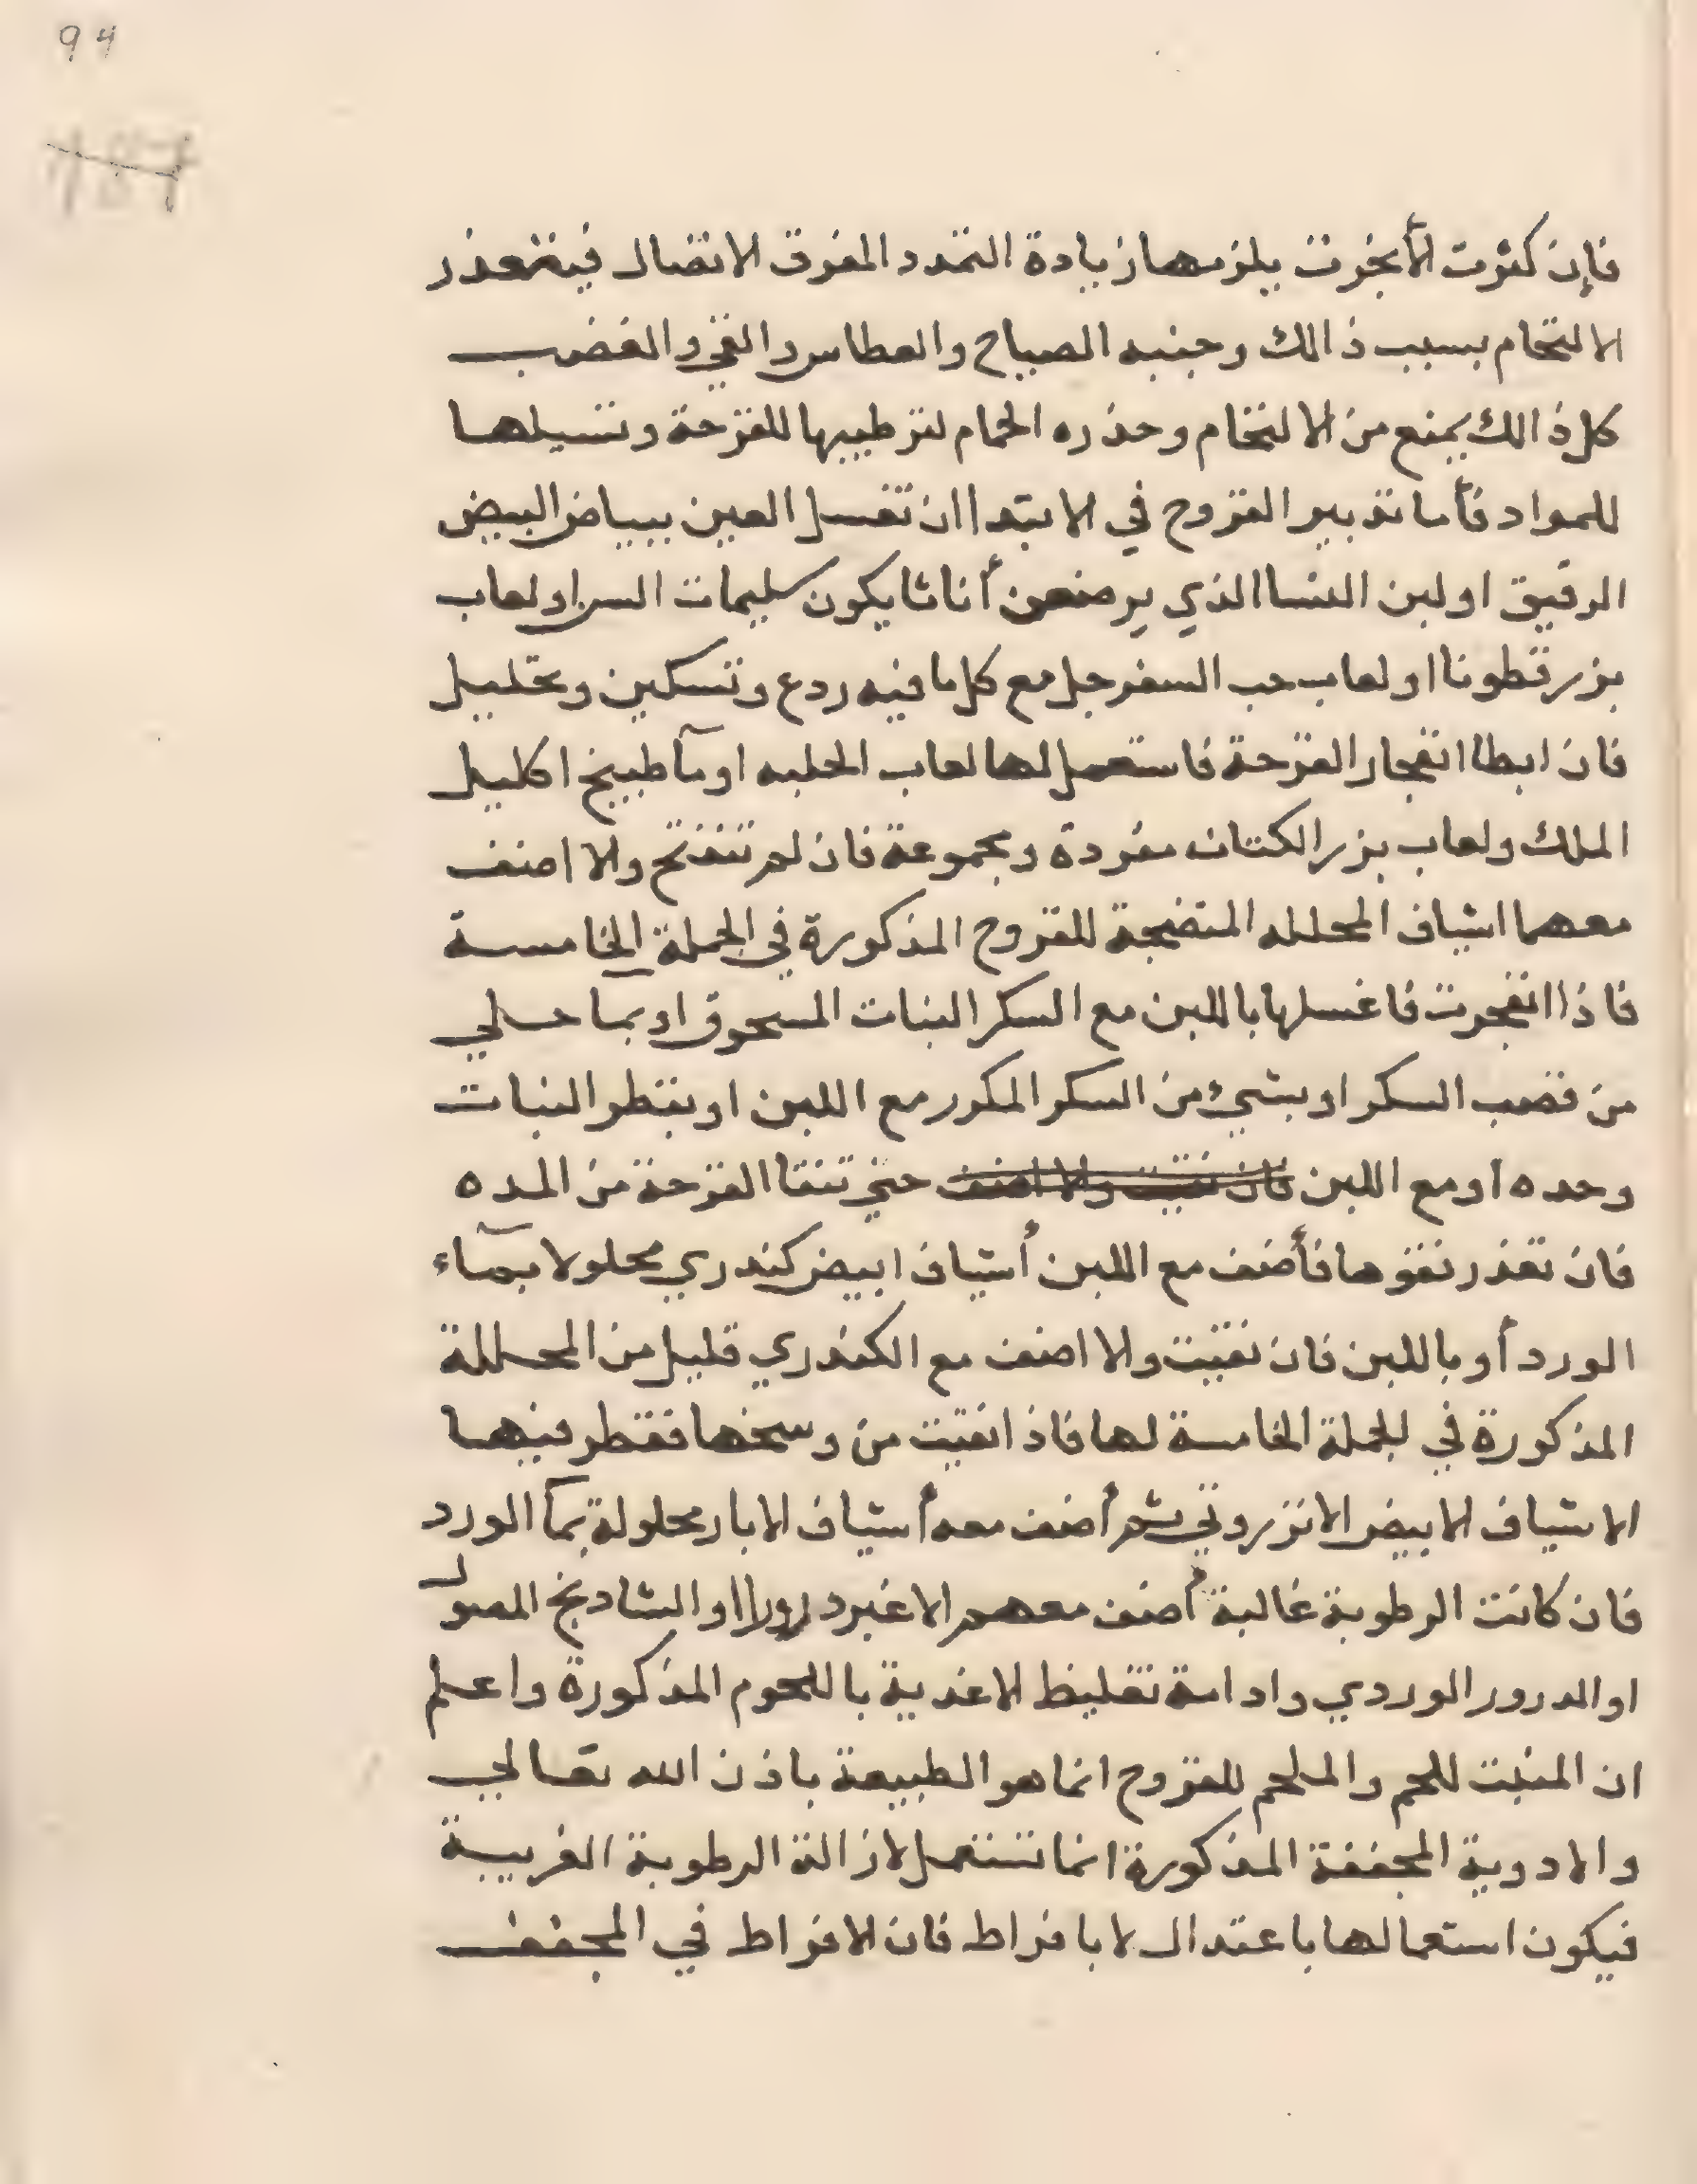 94
فإن كثرت الأبخرت يلزمها زيادة التمدد المفرق الاتصال فيتعذر
الالتحام بسبب ذالك وجنبه الصياح والعطاس والقي والغضب
كل ذالك يمنع من الالتحام وحذره الحمام لترطيبها للقرحة وتسيلها
للمواد فأما تدبير القروح في الابتداا ان تغسل العين ببياض البيض
الرقيق او لبن النسا الذي يرضعن أناثا يكون سليمات السن او لعاب
بزر قطونا او لعاب حب السفرجل مع كل ما فيه ردع وتسكين وتحليل
فان ابطا انفجار القرحة فاستعمل لها لعاب الحلبه او مآ طبيخ اكليل
الملك ولعاب بزر الكتان مفردة ومجموعة فان لم تنفتح والا اضف
معهما اشياف المحلله المنضجة للقروح المذكورة في الجملة الخامسة
فاذا انفجرت فاغسلها باللبن مع السكر النبات المسحوق او بما حلي
من قصب السكر او بشيء من السكر المكرر مع اللبن او بقطر النبات
وحده او مع اللبن فان نقيت والا اضف حتي تنقا القرحة من المده
فان تعذر نقوها فأضف مع اللبن أشياف ابيض كندري محلولا بمآء
الورد أو باللبن فان نقيت والا اضف مع الكندري قليل من المحللة
المذكورة في الجملة الخامسة لها فاذا نقيت من وسخها فقطر فيها
الاشياف الابيض الانزروتي ثم أضف معه أشياف الابار محلولة بمآ الورد
فان كانت الرطوبة غالبة أضف معهم الاغبر درورا او الشادنج المصول
او الدرور الوردي وادامة تغليظ الاغذية باللحوم المذكورة واعلم
ان المنبت للحم والملحم للقروح انما هو الطبيعة باذن الله تعالي
والادوية المجففة المذكورة انما تستعمل لازالة الرطوبة الغريبة
فيكون استعمالها باعتدال لا بافراط فان الافراط في المجفف